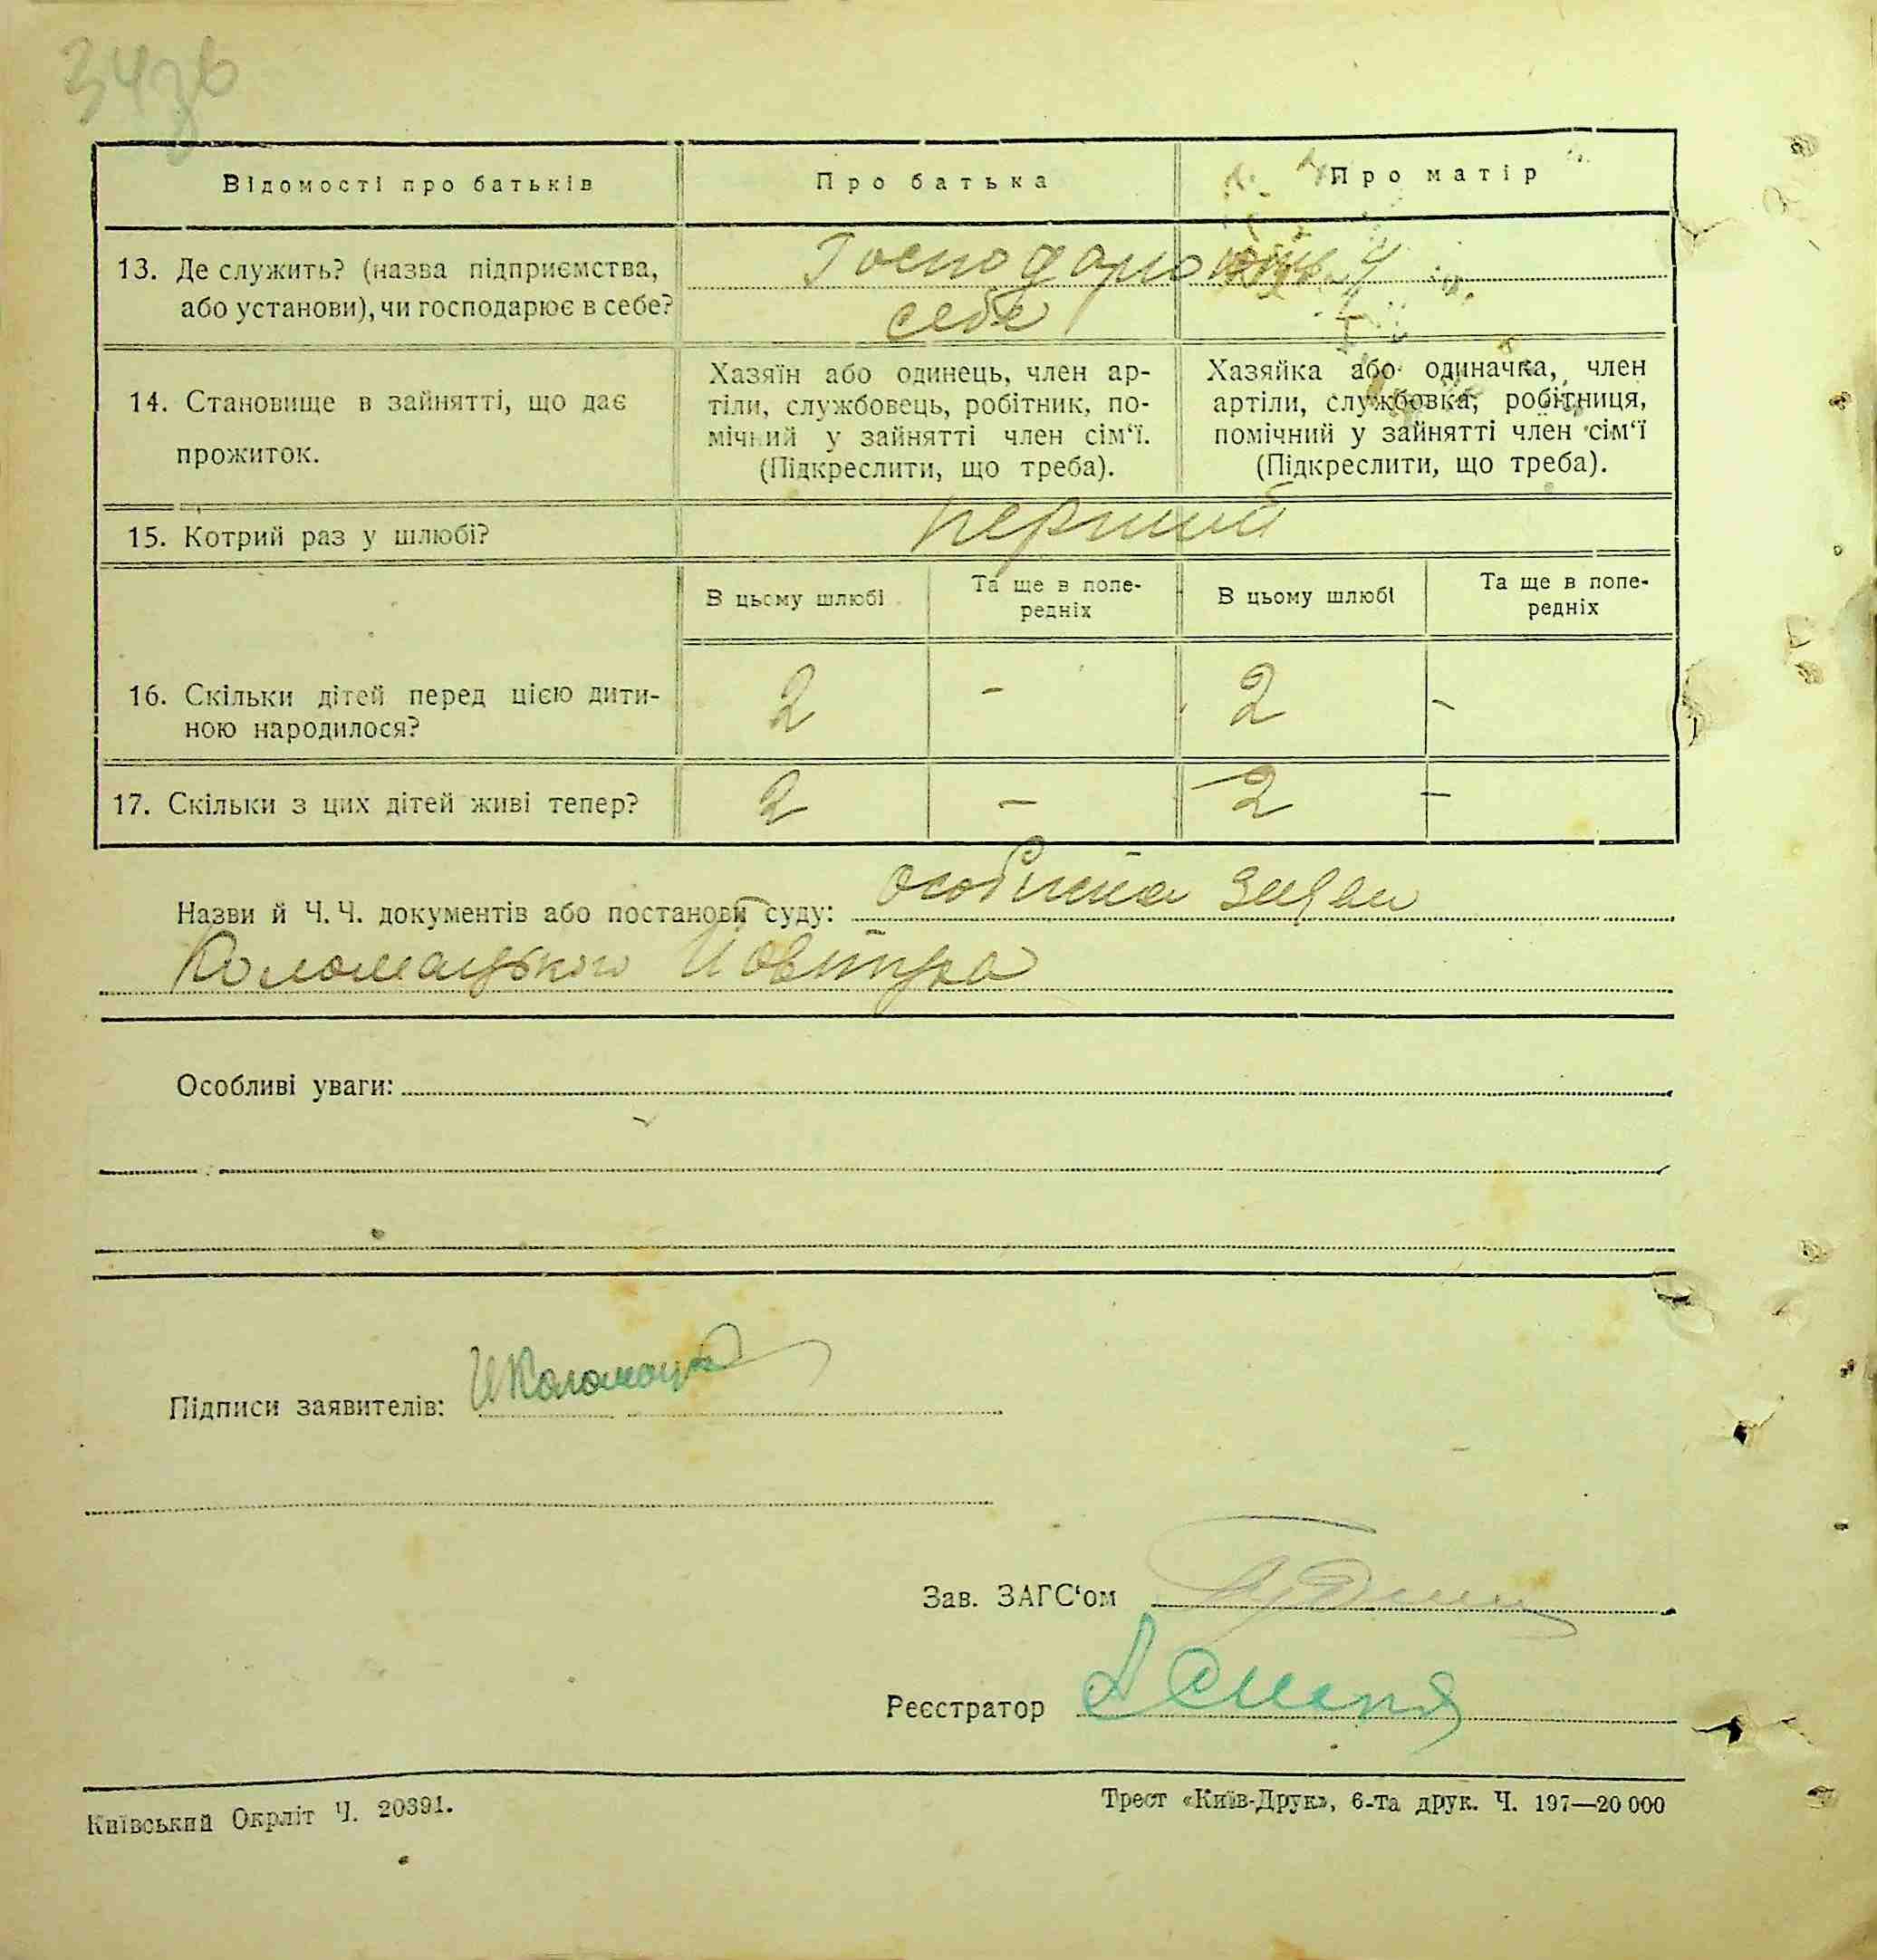 34зв
Відомості про батьків
Про батька
Про матір
13. Де служить? (назва підприємства,
або установи), чи господарює в себе?
Господарюють у
себе
14. Становище в зайнятті, що дає
прожиток.
Хазяїн або одинець, член ар-
тіли, службовець, робітник, по-
мічний у зайнятті член сім‘ї.
(Підкреслити, що треба).
Хазяйка або одиначка, член
артіли, службовка, робітниця,
помічний у зайнятті член сім‘ї
(Підкреслити, що треба).
15. Котрий раз у шлюбі?
перший
В цьому шлюбі
Та ще в попе-
редніх
В цьому шлюбі
Та ще в попе-
редніх
16. Скільки дітей перед цією дити-
ною народилося?
2 - 2 -
17. Скільки з цих дітей живі тепер?
2 - 2 -
Назви й Ч.Ч. документів або постанови суду: особиста
Коломацького
Особливі уваги:
Підписи заявителів:
Зав. ЗАГС‘ом
Реєстратор
Київський Окрліт Ч. 20391.
Трест «Київ-Друк», 6-та друк. Ч. 197—20 000